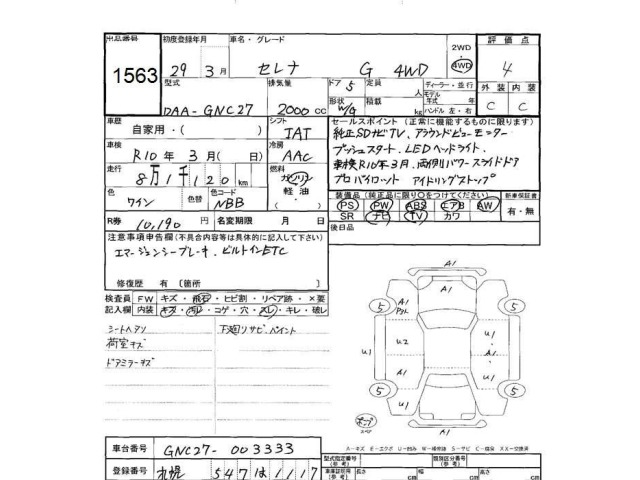 出品番号 初度登録年月 車名・グレード 2WD 4WD 評価点
1563 29年 3月 セレナ G 4WD 4
型式 排気量 ドア 5 定員 人 ディーラー・並行 外装 内装
DAA-GNC27 2000cc 形状 W/G 積載 kg モデル年式 年 ハンドル 左・右 C C
車歴 自家用・( ) シフト IAT
セールスポイント (正常に機能するものに限ります)
純正SDナビTV、アラウンドビューモニター
プッシュスタート、LEDヘッドライト、
車検R10年3月、両側パワースライドドア
プロパイロット アイドリングストップ
車検 R10年 3月( ) 冷房 AAC
走行 8万1千120km 燃料 ガソリン 軽油・
色 ワイン 色替 色コード NBB
装備品 (純正品に限り○をつけてください) 新車保証書
PS PW ABS エアB AW 有・無
SR ナビ TV カワ
R券 10,190円 名変期限 月 日
後日品
注意事項申告欄(不具合内容等は具体的に記入して下さい)
エマージェンシーブレーキ、ビルトインETC
修復歴 有 〔箇所 〕
検査員記入欄 FW キズ・飛石・ヒビ割・リペア跡・×要
内装 キズ・汚レ・コゲ・穴・スレ・キレ・破レ
シートヘタリ 下廻リサビ、ペイント
荷室キズ
ドアミラーキズ
A1
A1
5 5
A1
U1 U2 U1 キズ A1 U1
5 5
U1 U1
A1
A-キズ E-エクボ U-凹み W-補修跡 S-サビ C-腐食 XX-交換済
車台番号 GNC27-003333
登録番号 札幌 547 は 1117
型式指定番号(参考) 類別区分番号(参考)
車検証記載(参考) 長さ cm 幅 cm 高さ cm